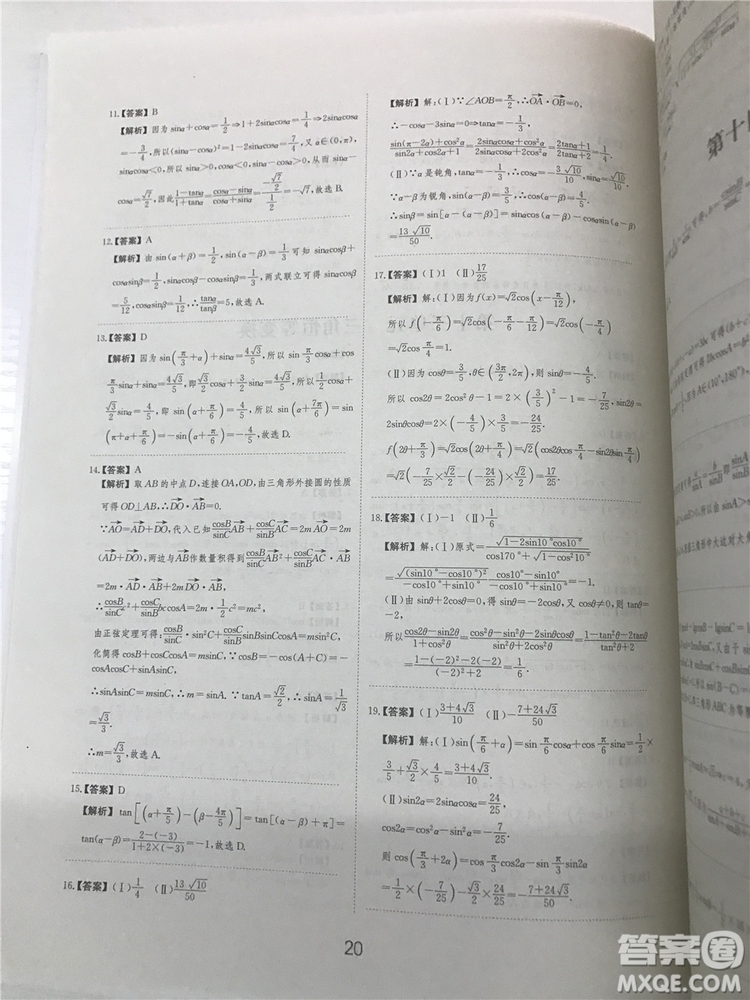 11.【答案】B
【解析】因为 sinα+cosα=1/2⇒1+2sinαcosα=1/4⇒2sinαcosα
=-3/4,所以(sinα-cosα)²=1-2sinαcosα=7/4,又 α∈(0,π),
sinαcosα<0,所以 sinα>0,cosα<0,sinα-cosα>0,从而 sinα-
cosα=√7/2,因此(1-tanα)/(1+tanα)=(cosα-sinα)/(cosα+sinα)=(-√7/2)/(1/2)=-√7,故选 B.
12.【答案】A
【解析】由 sin(α+β)=1/2,sin(α-β)=1/3可知 sinαcosβ+
cosαsinβ=1/2,sinαcosβ-cosαsinβ=1/3,两式联立可得 sinαcosβ=
5/12,cosαsinβ=1/12,∴tanα/tanβ=5,故选 A.
13.【答案】D
【解析】因为 sin(π/3+α)+sinα=4√3/5,所以 sin π/3 cosα+cos
π/3 sinα+sinα=4√3/5,即√3/2 cosα+3/2 sinα=4√3/5,所以1/2 cosα+
√3/2 sinα=4/5,即 sin(α+π/6)=4/5,所以 sin(α+7π/6)=sin
(π+α+π/6)=-sin(α+π/6)=-4/5,故选 D.
14.【答案】A
【解析】取 AB 的中点 D,连接 OA,OD,由三角形外接圆的性质
可得 OD⊥AB,∴DO·AB=0.
∵AO=AD+DO,代入已知cosB/sinC AB+cosC/sinB AC=2m AO=2m
(AD+DO),两边与AB作数量积得到cosB/sinC AB²+cosC/sinB AB·AC
=2m AD·AB+2m DO·AB,
∴cosB/sinC·c²+cosC/sinB bccosA=2m·1/2c²=mc²,
由正弦定理可得:cosB/sinC·sin²C+cosC/sinB sinBsinCcosA=msin²C,
化简得 cosB+cosCcosA=msinC,∵cosB=-cos(A+C)=
-cosAcosC+sinAsinC,
∴sinAsinC=msinC,∴m=sinA.∵tanA=√2/2,∴sinA=1/√3
=√3/3.
∴m=√3/3,故选 A.
15.【答案】D
【解析】tan[(α+π/5)-(β-4π/5)]=tan[(α-β)+π]=
tan(α-β)=(2-(-3))/(1+2×(-3))=-1,故选 D.
16.【答案】(Ⅰ)1/4 (Ⅱ)13√10/50
【解析】解:(Ⅰ)∵∠AOB=π/2,∴OA·OB=0,
∴-cosα-3sinα=0⇒tanα=-1/3,
(sin(π-2α)+cos²α)/(sin2α+cos2α+1)=(2sinαcosα+cos²α)/(2sinαcosα+2cos²α)=(2tanα+1)/(2tanα+2)=1/4.
17.【答案】(Ⅰ)1 (Ⅱ)17/25
【解析】解:(Ⅰ)因为 f(x)=√2cos(x-π/12),
所以 f(-π/6)=√2cos(-π/6-π/12)=√2cos(-π/4)
=√2cos π/4=1.
(Ⅱ)因为 cosθ=3/5,θ∈(3π/2,2π),则 sinθ=-4/5.
所以 cos2θ=2cos²θ-1=2×(3/5)²-1=-7/25,sin2θ=
2sinθcosθ=2×(-4/5)×3/5=-24/25.
f(2θ+π/3)=√2cos(2θ+π/4)=√2(cos2θcos π/4-sin2θsin π/4)
=√2(-7/25×√2/2+24/25×√2/2)=17/25.
18.【答案】(Ⅰ)-1 (Ⅱ)1/6
(Ⅱ)由 sinθ+2cosθ=0,得 sinθ=-2cosθ,又 cosθ≠0,则 tanθ=
-2,
所以(cos2θ-sin2θ)/(1+cos²θ)=(cos²θ-sin²θ-2sinθcosθ)/(sin²θ+2cos²θ)=(1-tan²θ-2tanθ)/(tan²θ+2)
=(1-(-2)²-2(-2))/((-2)²+2)=1/6.
19.【答案】(Ⅰ)(3+4√3)/10 (Ⅱ)-(7+24√3)/50
【解析】解:(Ⅰ)sin(π/6+α)=sin π/6 cosα+cos π/6 sinα=1/2×
3/5+√3/2×4/5=(3+4√3)/10.
(Ⅱ)sin2α=2sinαcosα=24/25,
cos2α=cos²α-sin²α=-7/25.
则 cos(π/3+2α)=cos π/3 cos2α-sin π/3 sin2α
=1/2×(-7/25)-√3/2×24/25=-(7+24√3)/50.
20
第十
答案圈
MXQE.COM